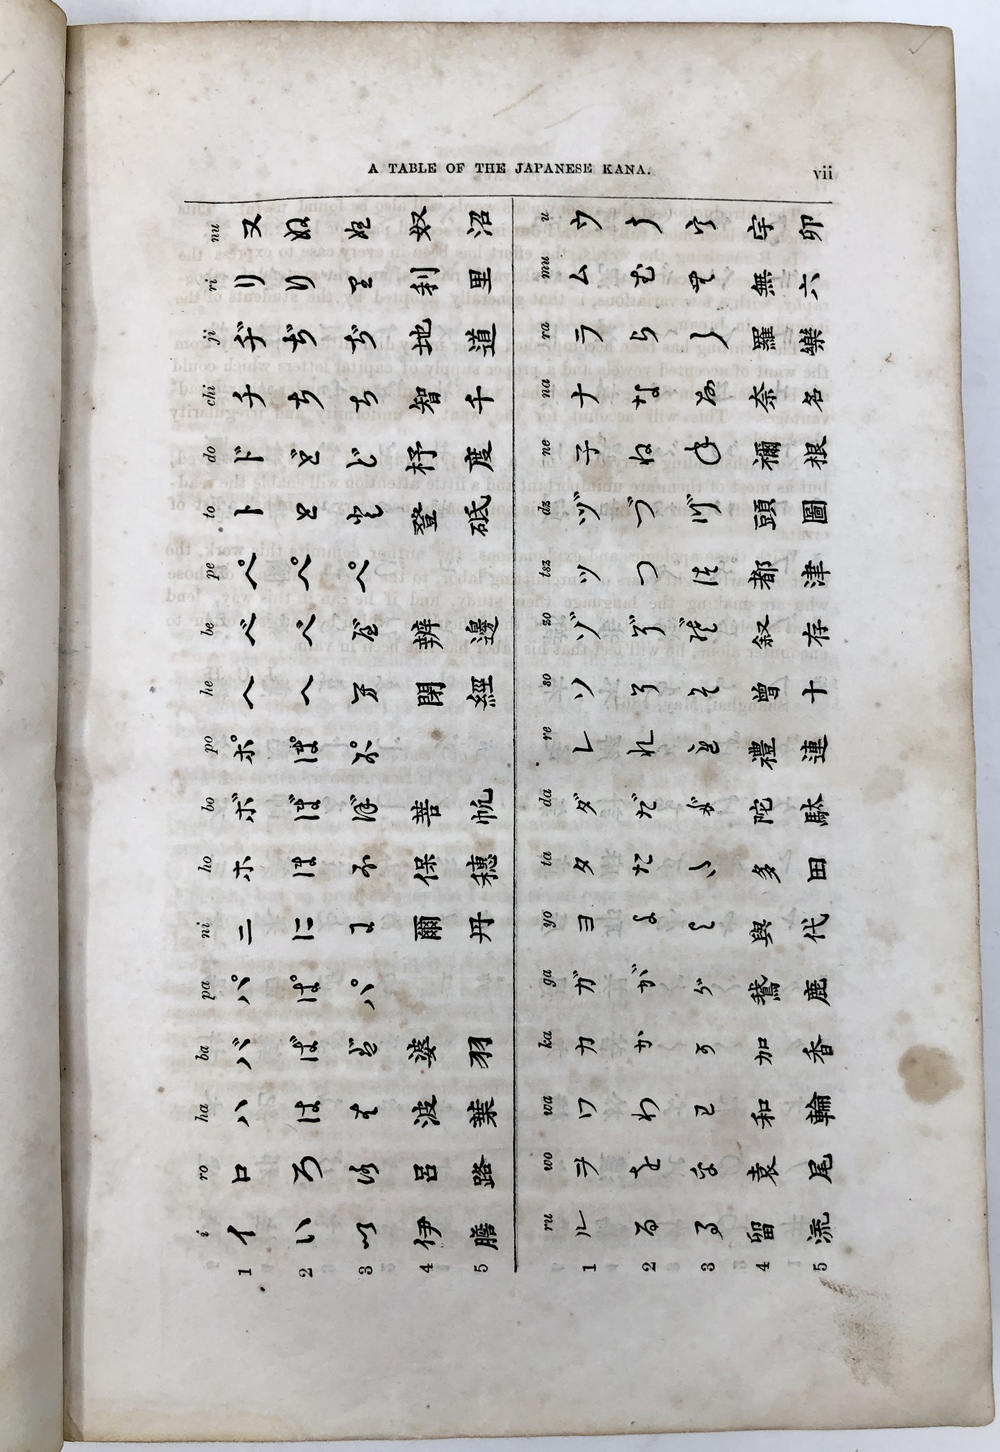 A TABLE OF THE JAPANESE KANA. vii
i ro ha ba pa ni ho bo po he be pe to do chi ji ri nu
1 イ ロ ハ バ パ ニ ホ ボ ポ ヘ ベ ペ ト ド チ ヂ リ ヌ
2 い ろ は ば ぱ に ほ ぼ ぽ へ べ ぺ と ど ち ぢ り ぬ
3 パ ぺ ど ち ぢ
4 伊 呂 波 婆 爾 保 菩 閉 辨 登 杼 智 地 利 奴
5 膽 路 葉 羽 丹 穗 帆 經 邊 砥 度 千 道 里 沼
ru wo wa ka ga yo ta da re so zo tsz dz ne na ra mu u
1 ル ヲ ワ カ ガ ヨ タ ダ レ ソ ゾ ツ ヅ 子 ナ ラ ム ウ
2 る を わ か が よ た だ れ そ ぞ つ づ ね な ら む う
3 る そ
4 留 袁 和 加 鵞 與 多 陀 禮 曽 叙 都 頭 禰 奈 羅 無 宇
5 流 尾 輪 香 鹿 代 田 駄 連 十 存 津 圖 根 名 樂 六 卯